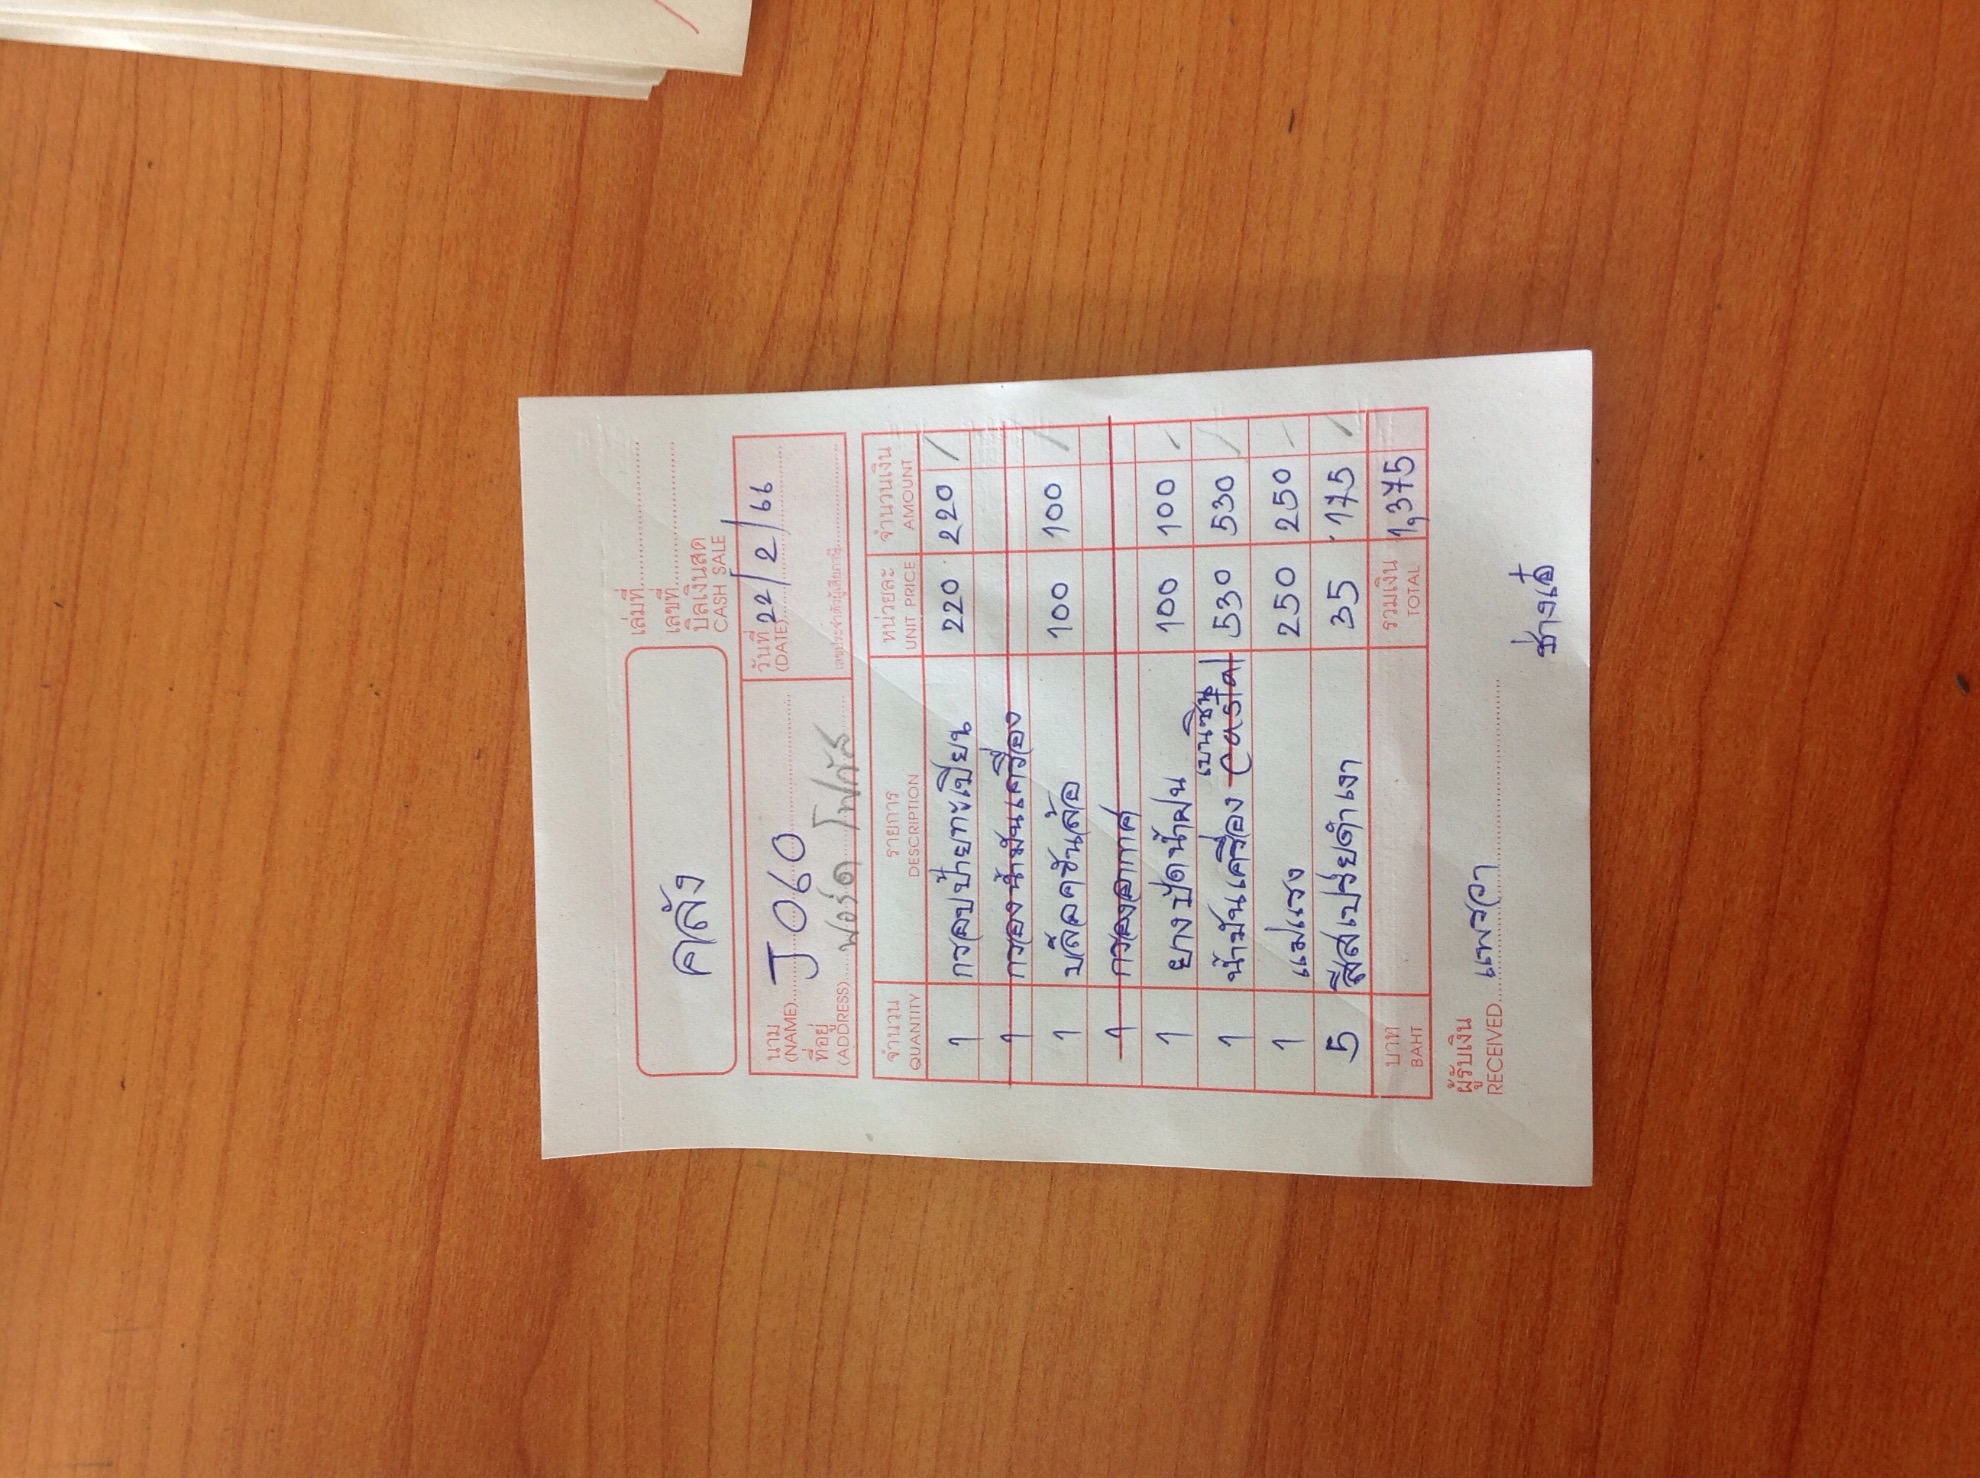 คลัง
เล่มที่
เลขที่
บิลเงินสด
CASH SALE
นาม J 060 วันที่ 22/2/66
(NAME) (DATE)
ที่อยู่ ฟอร์ด โฟกัส เลขประจำตัวผู้เสียภาษี
(ADDRESS)
จำนวน รายการ หน่วยละ จำนวนเงิน
QUANTITY DESCRIPTION UNIT PRICE AMOUNT
1 กรอบป้ายทะเบียน 220 220
1 กรองน้ำมันเครื่อง
1 บล๊อคขันล้อ 100 100
1 กรองอากาศ
1 ยางปัดน้ำฝน 100 100
เบนซิน
1 น้ำมันเครื่อง Castal 530 530
1 แม่แรง 250 250
5 สีสเปรย์ดำเงา 35 175
บาท รวมเงิน 1,375
BAHT TOTAL
ผู้รับเงิน
RECEIVED แพรวา
ช่างเอ๋